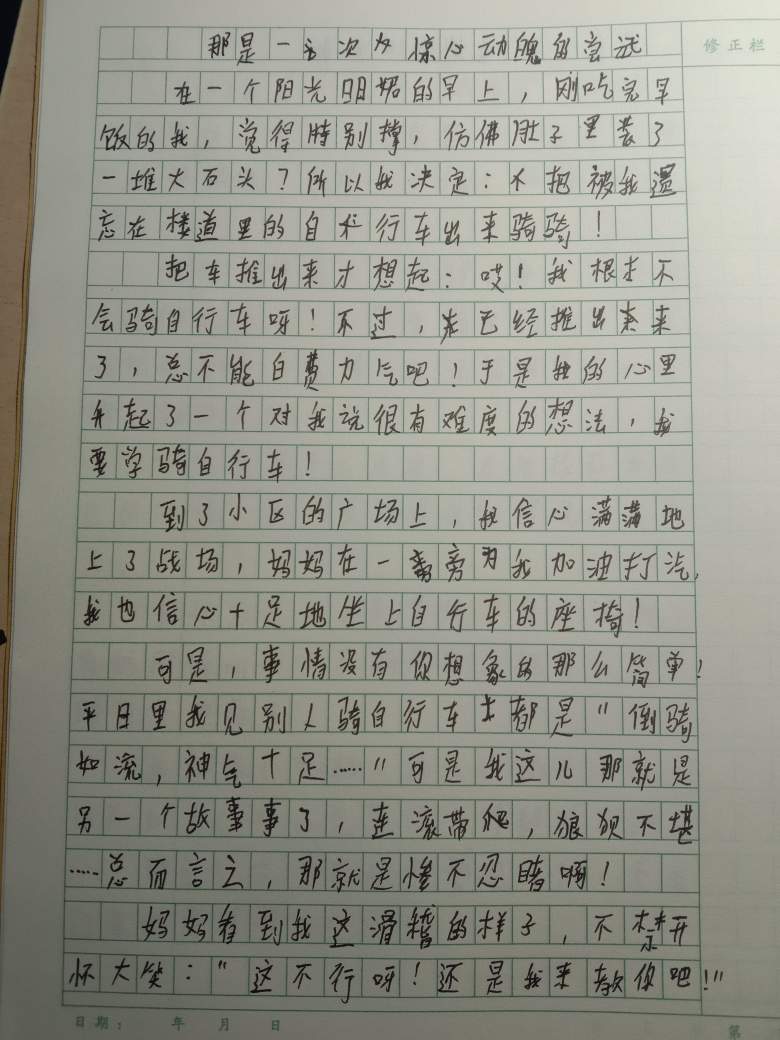 修正栏
那是一次惊心动魄的尝试
在一个阳光明媚的早上，刚吃完早
饭的我，觉得特别撑，仿佛肚子里装了
一堆大石头？所以我决定：把被我遗
忘在楼道里的自行车出来骑骑！
把车推出来才想起：哎！我根本不
会骑自行车呀！不过，车已经推出来
了，总不能白费力气吧！于是我的心里
升起了一个对我说很有难度的想法，我
要学骑自行车！
到了小区的广场上，我信心满满地
上了战场，妈妈在一旁为我加油打汽，
我也信心十足地坐上自行车的座椅！
可是，事情没有你想象的那么简单！
平日里我见别人骑自行车都是"倒骑
如流，神气十足……"可是我这儿那就是
另一个故事事了，连滚带爬，狼狈不堪
……总而言之，那就是惨不忍睹啊！
妈妈看到我这滑稽的样子，不禁开
怀大笑："这不行呀！还是我来教你吧！"
日期： 年 月 日
第